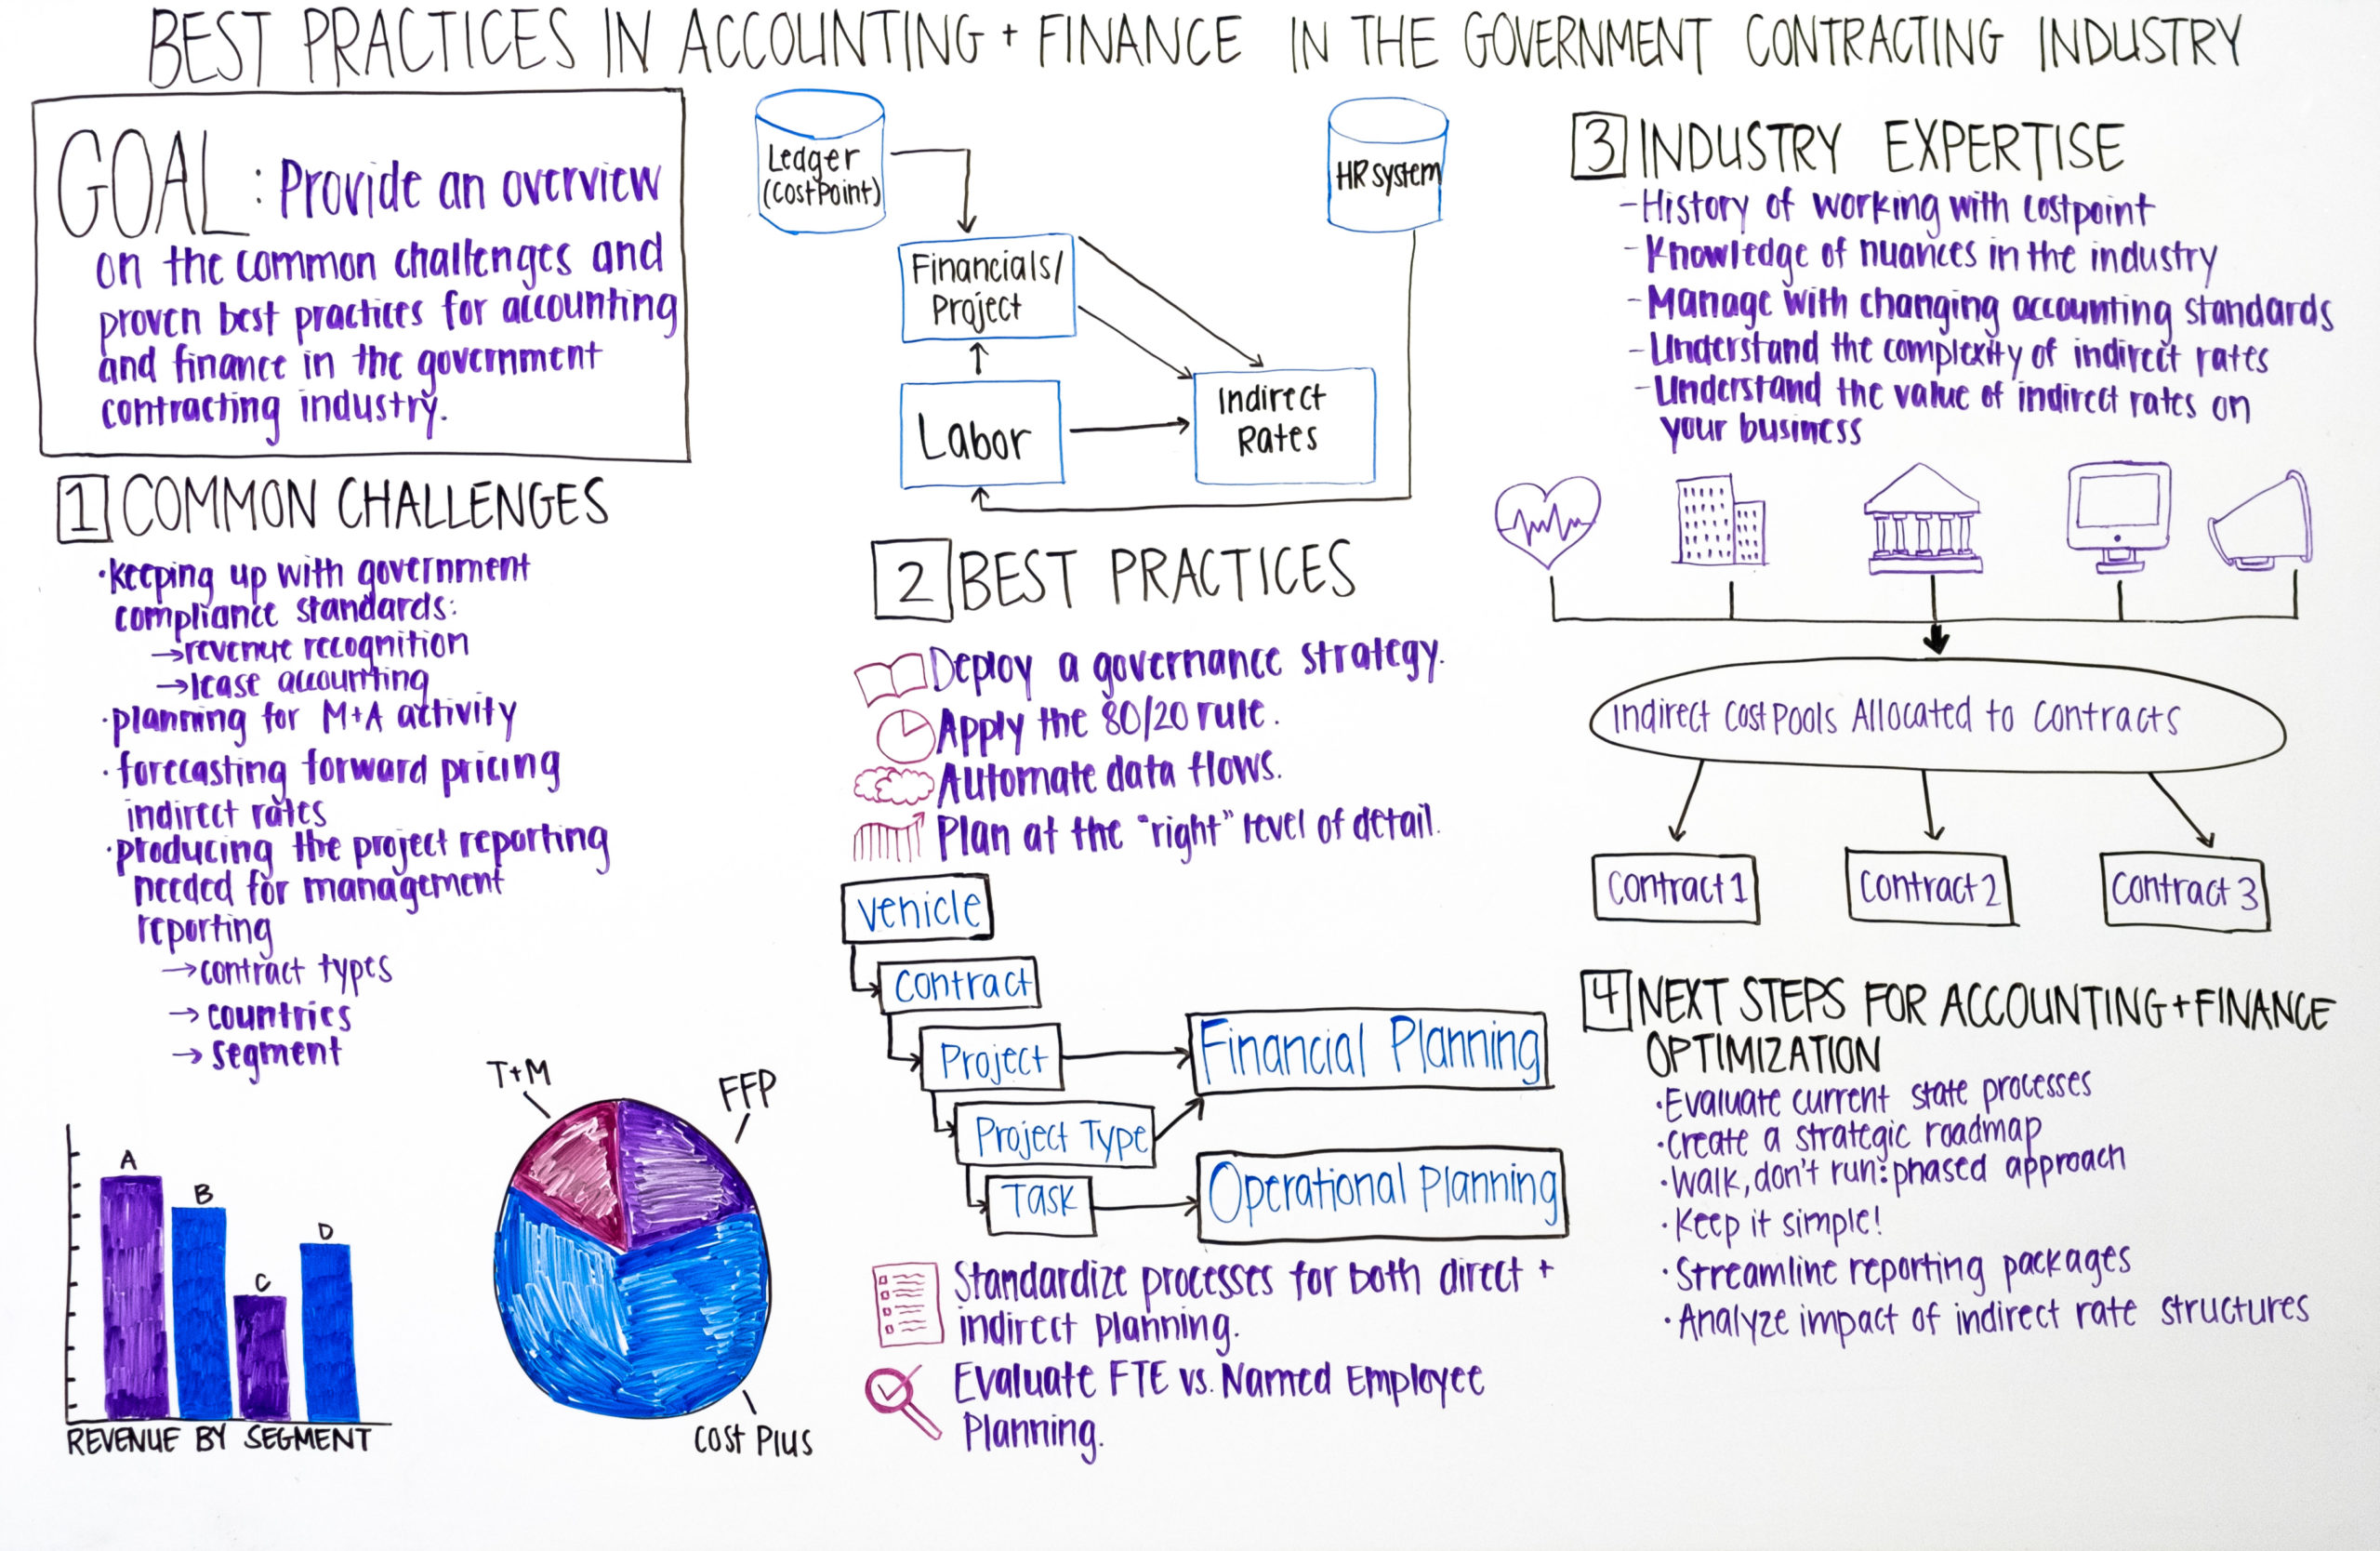 BEST PRACTICES IN ACCOUNTING + FINANCE IN THE GOVERNMENT CONTRACTING INDUSTRY
GOAL: Provide an overview
on the common challenges and
proven best practices for accounting
and finance in the government
contracting industry.
1 COMMON CHALLENGES
·keeping up with government
compliance standards:
→revenue recognition
→lease accounting
·planning for M+A activity
·forecasting forward pricing
indirect rates
·producing the project reporting
needed for management
reporting
→contract types
→countries
→segment
A
B
C
D
REVENUE BY SEGMENT
T+M
FFP
Cost Plus
Ledger
(CostPoint)
HR system
Financials/
Project
Labor
Indirect
Rates
2 BEST PRACTICES
Deploy a governance strategy.
Apply the 80/20 rule.
Automate data flows.
Plan at the "right" level of detail.
Vehicle
Contract
Project
Project Type
Task
Financial Planning
Operational Planning
Standardize processes for both direct +
indirect planning.
Evaluate FTE vs. Named Employee
Planning.
3 INDUSTRY EXPERTISE
-History of working with costpoint
-Knowledge of nuances in the industry
-Manage with changing accounting standards
-Understand the complexity of indirect rates
-Understand the value of indirect rates on
your business
Indirect Cost Pools Allocated to Contracts
Contract 1
Contract 2
Contract 3
4 NEXT STEPS FOR ACCOUNTING + FINANCE
OPTIMIZATION
·Evaluate current state processes
·Create a strategic roadmap
·Walk, don't run: phased approach
·Keep it simple!
·Streamline reporting packages
·Analyze impact of indirect rate structures